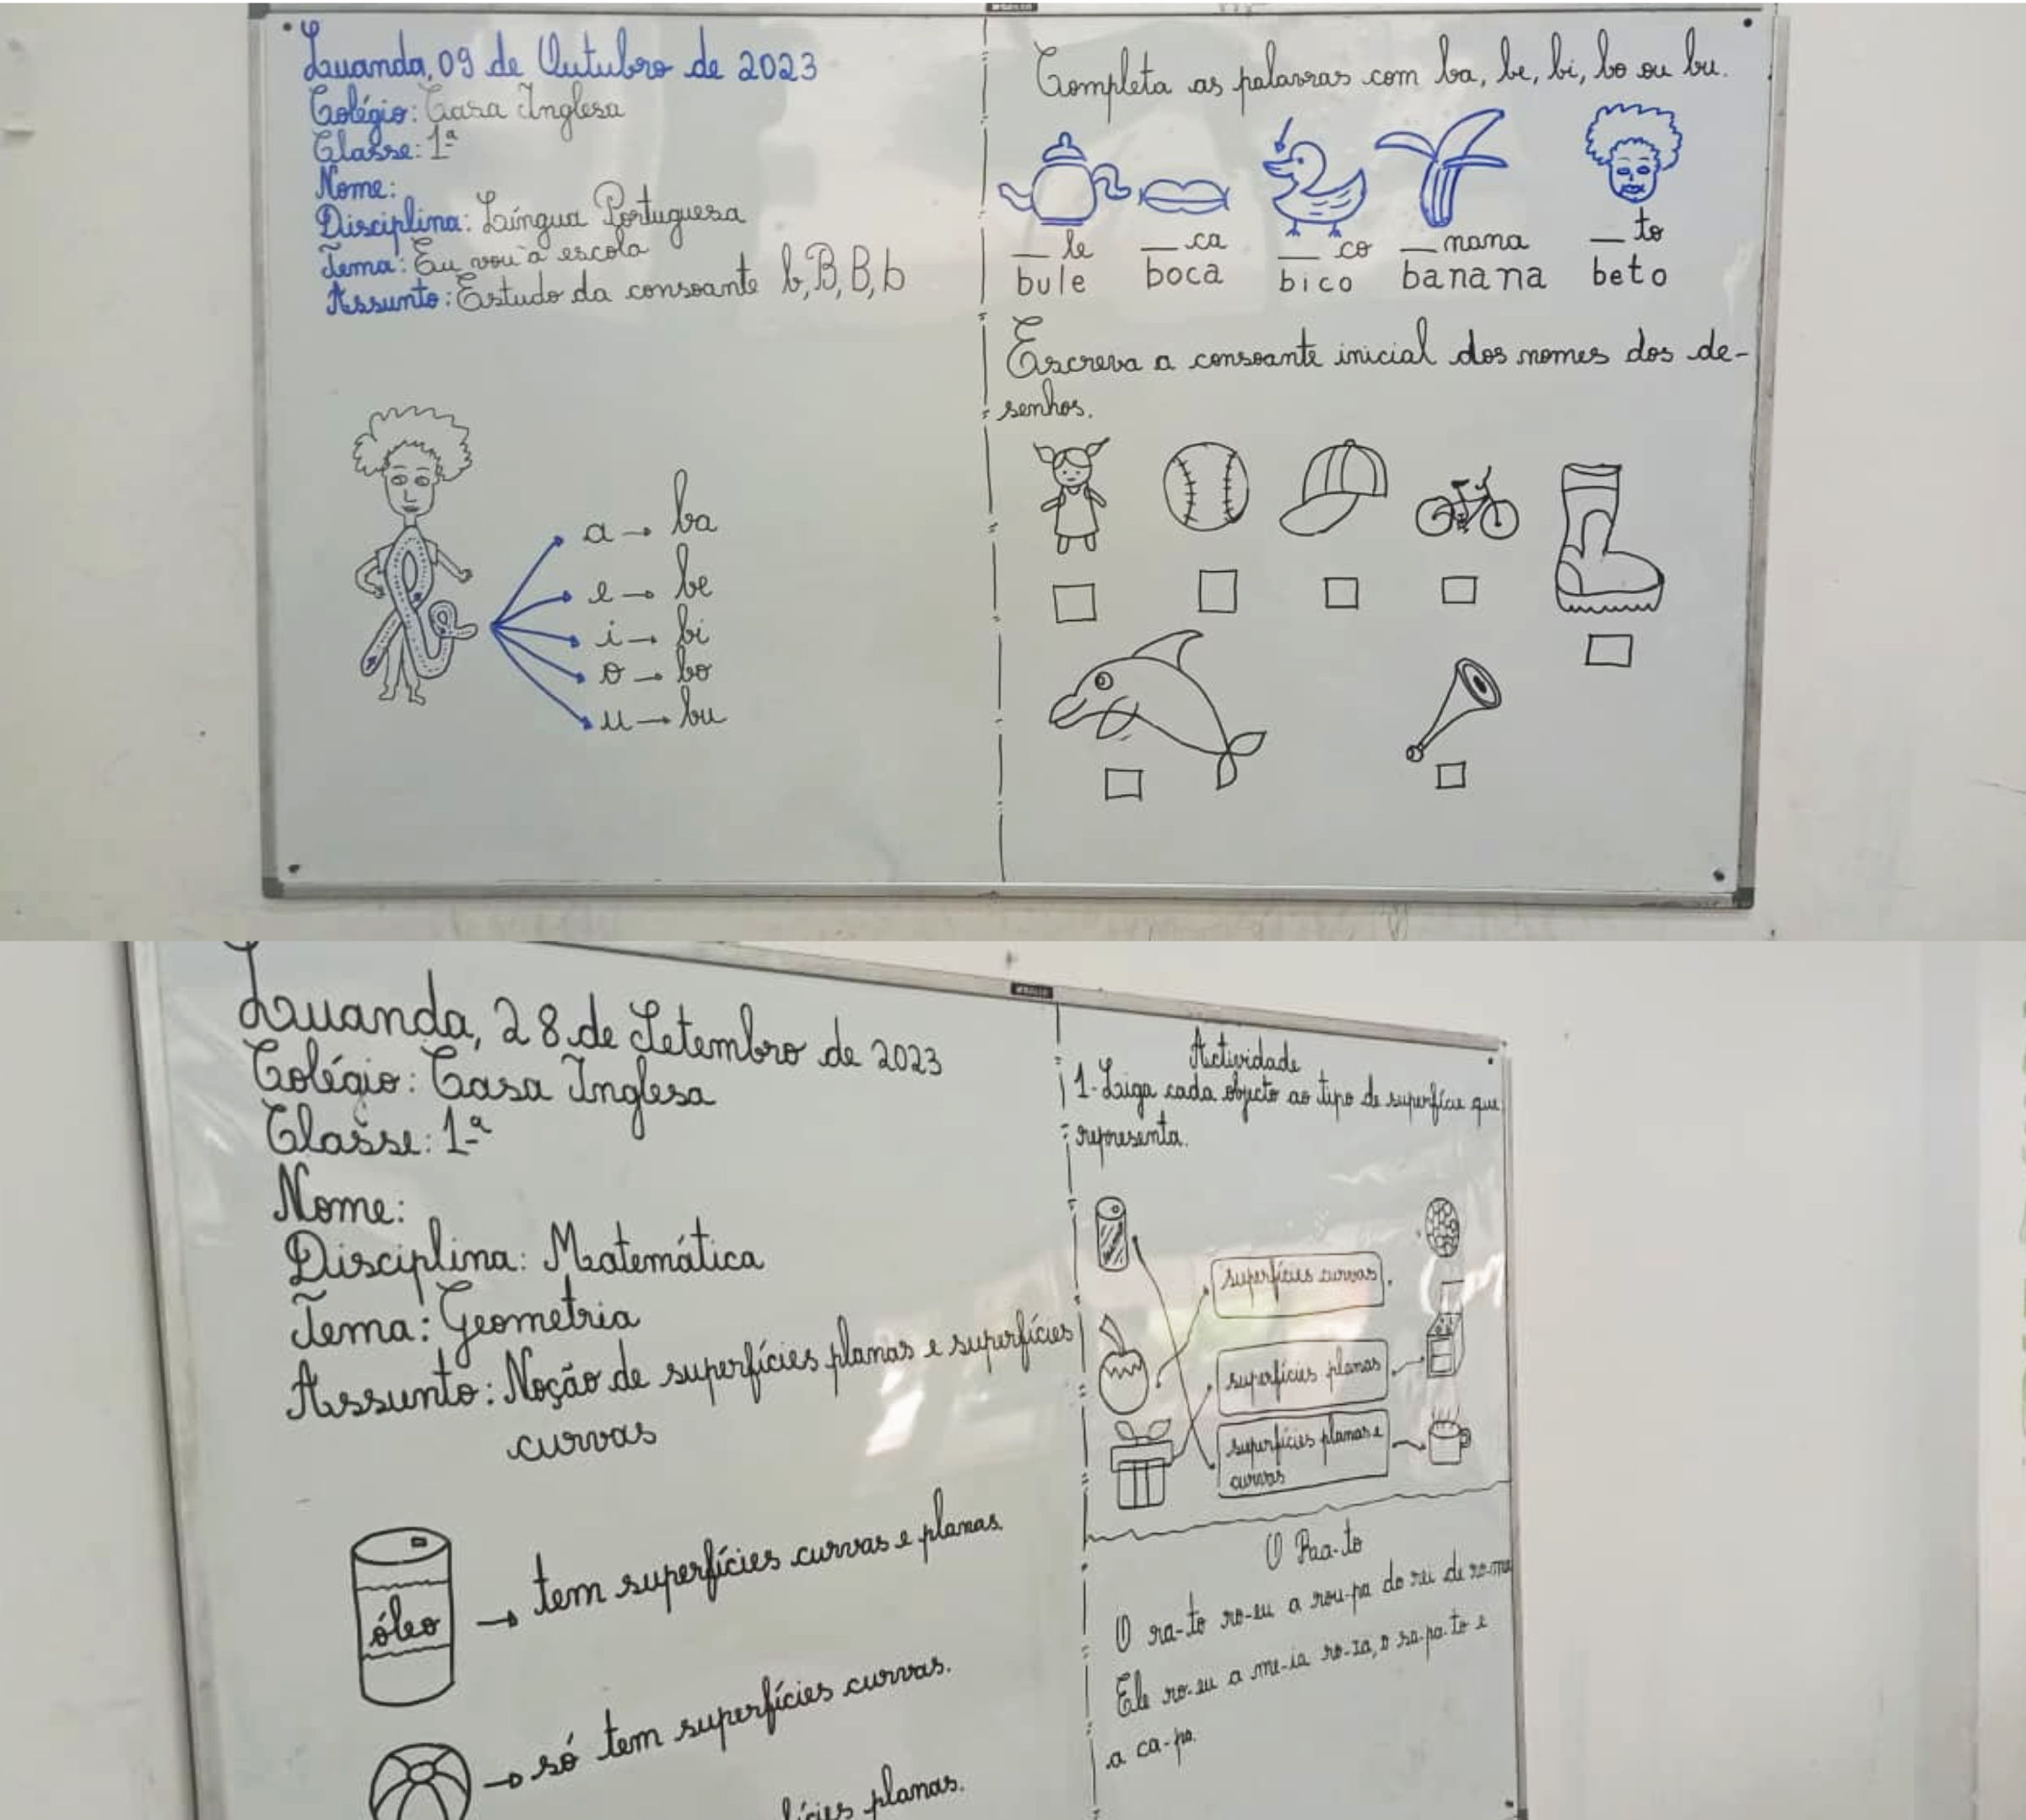 Luanda, 09 de Outubro de 2023
Colégio: Casa Inglesa
Classe: 1ª
Nome:
Disciplina: Língua Portuguesa
Tema: Eu vou à escola
Assunto: Estudo da consoante b, B, B, b
a → ba
e → be
i → bi
o → bo
u → bu
Completa as palavras com ba, be, bi, bo ou bu.
__ le __ ca __ co __ nana __ to
bule boca bico banana beto
Escreva a consoante inicial dos nomes dos de-
senhos.
Luanda, 28 de Setembro de 2023
Colégio: Casa Inglesa
Classe: 1ª
Nome:
Disciplina: Matemática
Tema: Geometria
Assunto: Noção de superfícies planas e superfícies
curvas
óleo → tem superfícies curvas e planas.
→ só tem superfícies curvas.
planas.
Actividade
1- Liga cada objecto ao tipo de superfície que
representa.
superfícies curvas
superfícies planas
superfícies planas e
curvas
O Raa-to
O ra-to ro-eu a rou-pa do rei de ro-ma
Ele ro-eu a me-ia ro-za, o sa-pa-to e
a ca-pa.